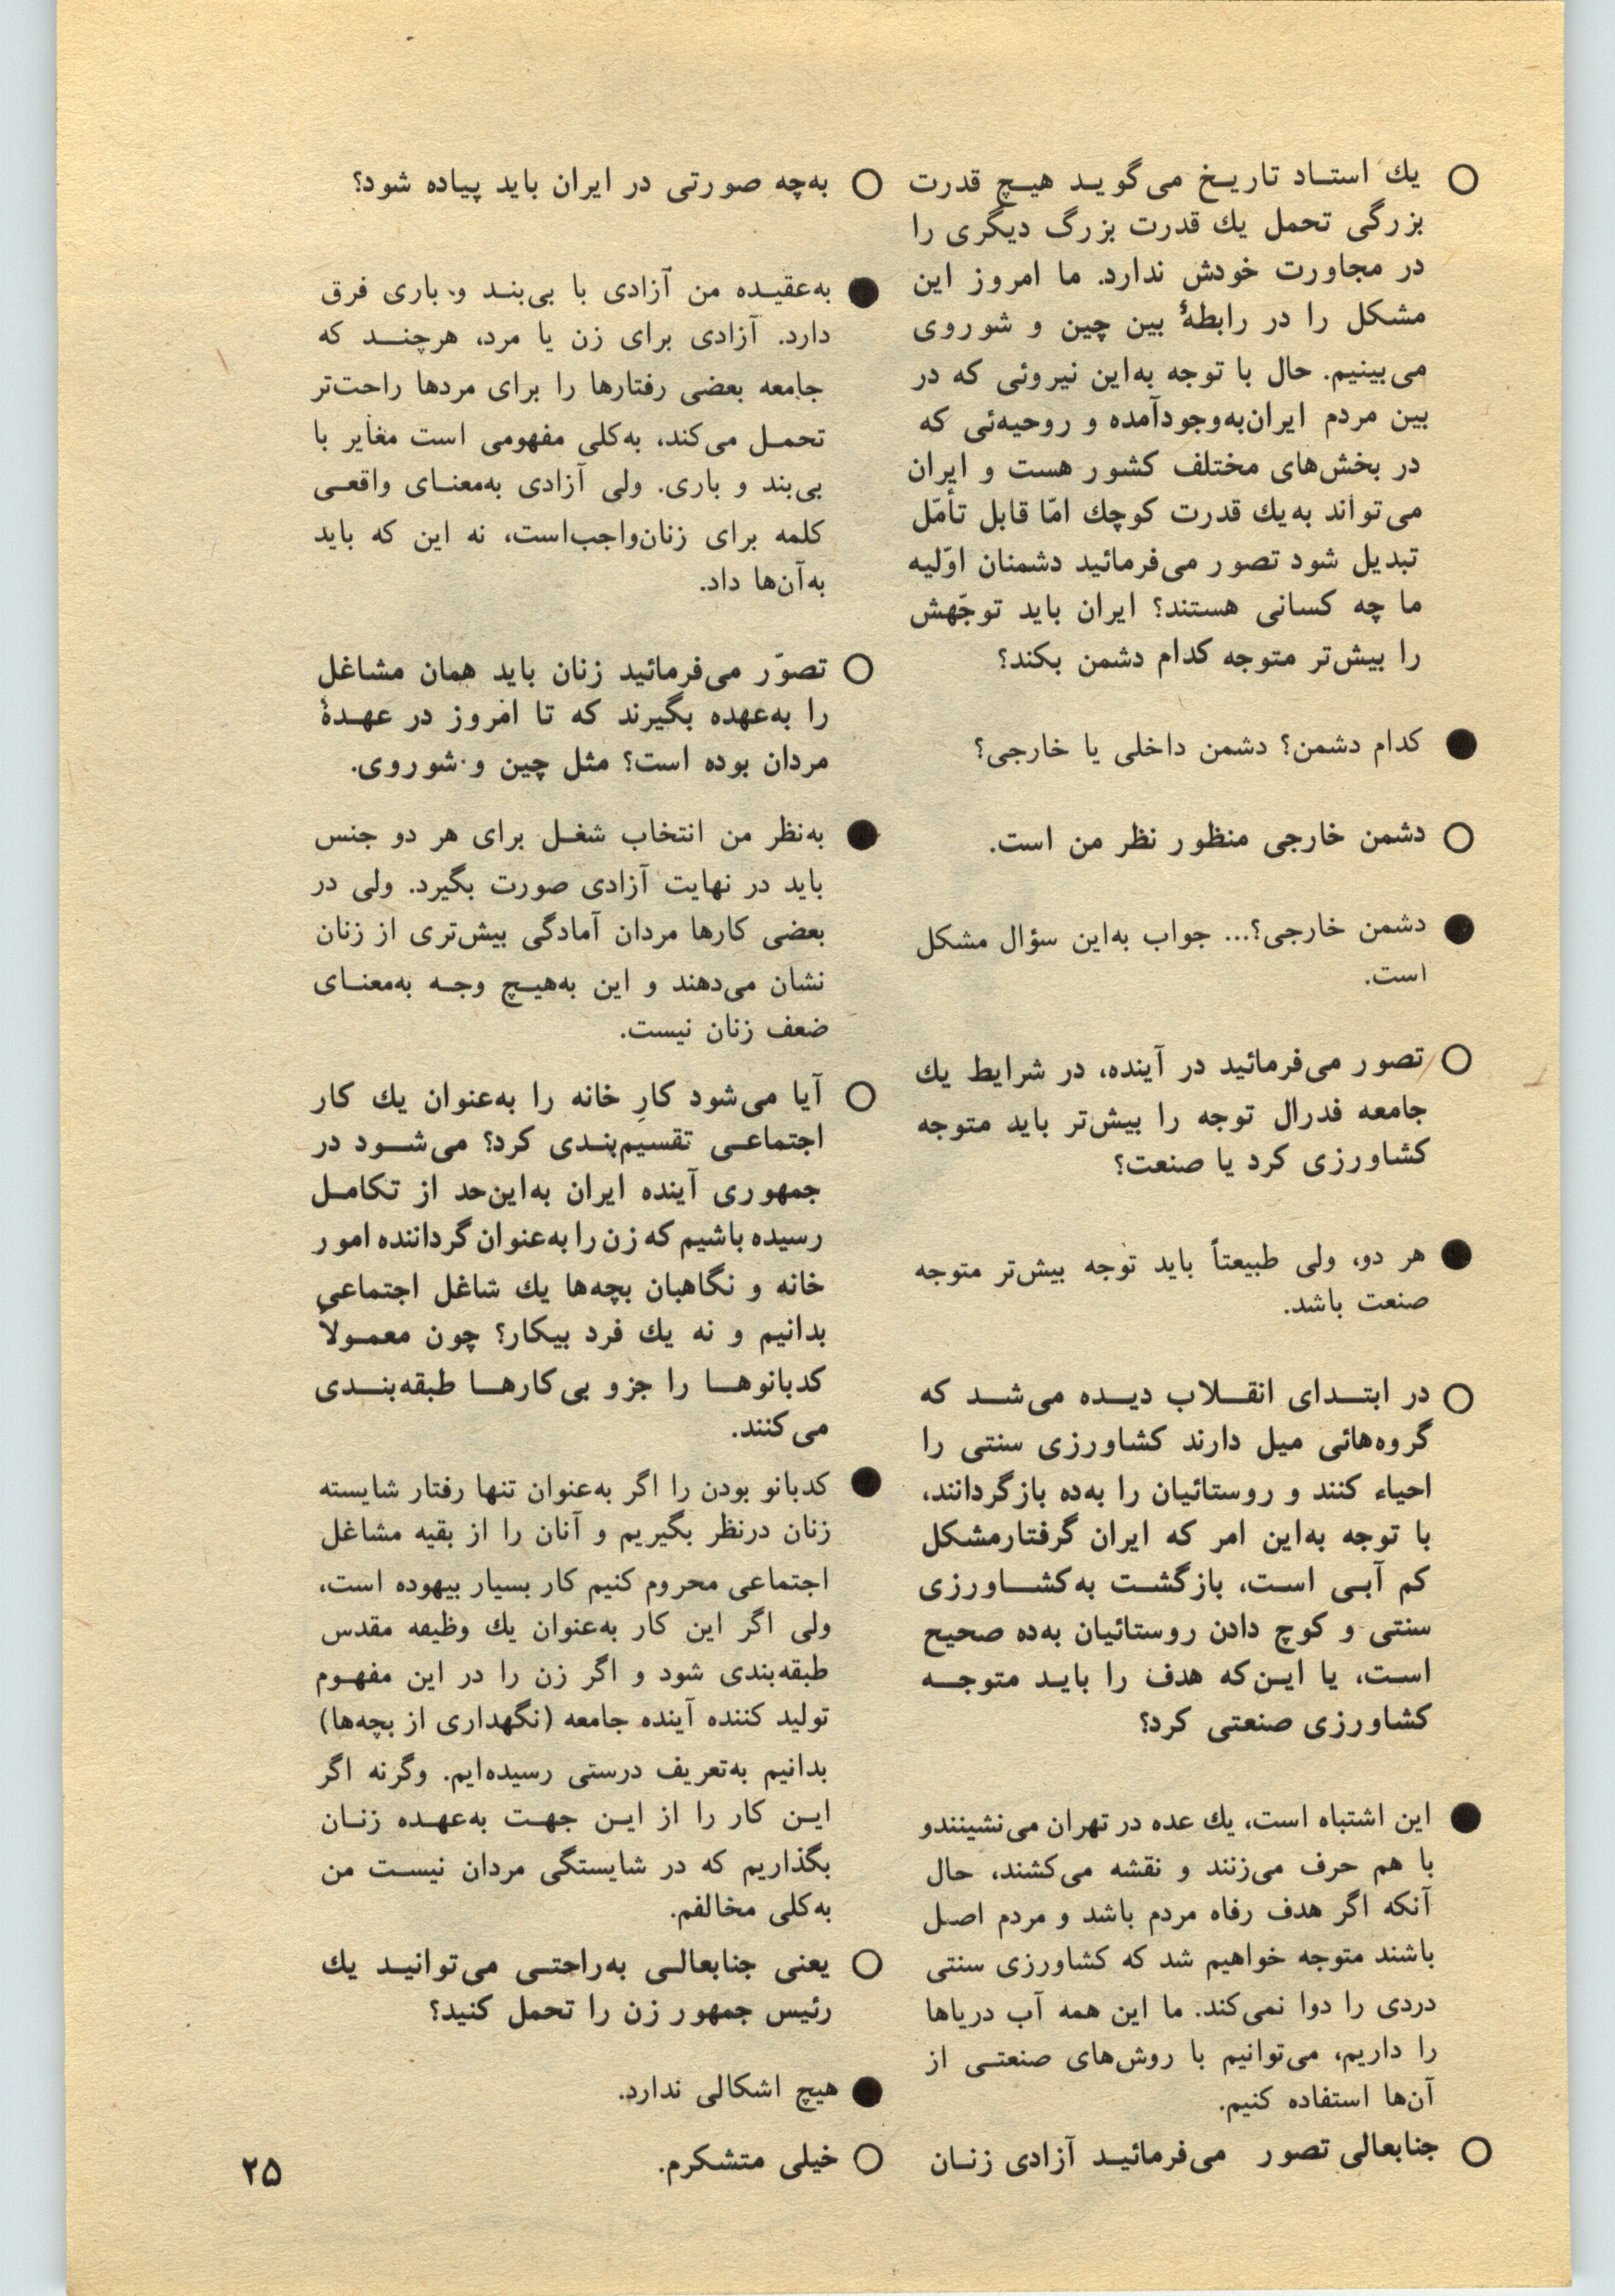 ○ یك استـاد تاریـخ می‌گویـد هیـچ قدرت
بزرگی تحمل یك قدرت بزرگ دیگری را
در مجاورت خودش ندارد. ما امروز این
مشکل را در رابطهٔ بین چین و شوروی
می‌بینیم. حال با توجه به‌این نیروئی که در
بین مردم ایران‌به‌وجودآمده و روحیه‌ئی که
در بخش‌های مختلف کشور هست و ایران
می‌تواند به‌یك قدرت کوچك امّا قابل تأمّل
تبدیل شود تصور می‌فرمائید دشمنان اوّلیه
ما چه کسانی هستند؟ ایران باید توجّهش
را بیش‌تر متوجه کدام دشمن بکند؟
● کدام دشمن؟ دشمن داخلی یا خارجی؟
○ دشمن خارجی منظور نظر من است.
● دشمن خارجی؟... جواب به‌این سؤال مشکل
است.
○ تصور می‌فرمائید در آینده، در شرایط یك
جامعه فدرال توجه را بیش‌تر باید متوجه
کشاورزی کرد یا صنعت؟
● هر دو، ولی طبیعتاً باید توجه بیش‌تر متوجه
صنعت باشد.
○ در ابتـدای انقـلاب دیـده می‌شـد که
گروه‌هائی میل دارند کشاورزی سنتی را
احیاء کنند و روستائیان را به‌ده بازگردانند،
با توجه به‌این امر که ایران گرفتارمشکل
کم آبـی اسـت، بازگشـت به‌کشـاورزی
سنتی و کوچ دادن روستائیان به‌ده صحیح
اسـت، یا ایـن‌که هدف را بایـد متوجـه
کشاورزی صنعتی کرد؟
● این اشتباه است، یك عده در تهران می‌نشینندو
با هم حرف می‌زنند و نقشه می‌کشند، حال
آنکه اگر هدف رفاه مردم باشد و مردم اصـل
باشند متوجه خواهیم شد که کشاورزی سنتی
دردی را دوا نمی‌کند. ما این همه آب دریاها
را داریم، می‌توانیم با روش‌های صنعتـی از
آن‌ها استفاده کنیم.
○ جنابعالی تصور می‌فرمائیـد آزادی زنـان
○ به‌چه صورتی در ایران باید پیاده شود؟
● به‌عقیـده من آزادی با بی‌بنـد و باری فرق
دارد. آزادی برای زن یا مرد، هرچنـد که
جامعه بعضی رفتارها را برای مردها راحت‌تر
تحمـل می‌کند، به‌کلی مفهومی است مغایر با
بی‌بند و باری. ولی آزادی به‌معنـای واقعـی
کلمه برای زنان‌واجب‌است، نه این که باید
به‌آن‌ها داد.
○ تصوّر می‌فرمائید زنان باید همان مشاغل
را به‌عهده بگیرند که تا امروز در عهـدهٔ
مردان بوده است؟ مثل چین و شوروی.
● به‌نظر من انتخاب شغـل برای هر دو جنس
باید در نهایت آزادی صورت بگیرد. ولی در
بعضی کارها مردان آمادگی بیش‌تری از زنان
نشان می‌دهند و این به‌هیـچ وجـه به‌معنـای
ضعف زنان نیست.
○ آیا می‌شود کارِ خانه را به‌عنوان یك کار
اجتماعـی تقسیم‌بنـدی کرد؟ می‌شـود در
جمهوری آینده ایران به‌این‌حد از تکامـل
رسیده باشیم که زن را به‌عنوان گرداننده امور
خانه و نگاهبان بچه‌ها یك شاغل اجتماعی
بدانیم و نه یك فرد بیکار؟ چون معمـولاً
کدبانوهـا را جزو بی‌کارهـا طبقه‌بنـدی
می‌کنند.
● کدبانو بودن را اگر به‌عنوان تنها رفتار شایسته
زنان درنظر بگیریم و آنان را از بقیه مشاغل
اجتماعی محروم کنیم کار بسیار بیهوده است،
ولی اگر این کار به‌عنوان یك وظیفه مقدس
طبقه‌بندی شود و اگر زن را در این مفهـوم
تولید کننده آینده جامعه (نگهداری از بچه‌ها)
بدانیم به‌تعریف درستی رسیده‌ایم. وگرنه اگر
ایـن کار را از ایـن جهـت به‌عهـده زنـان
بگذاریم که در شایستگی مردان نیسـت من
به‌کلی مخالفم.
○ یعنی جنابعالـی به‌راحتـی می‌توانیـد یك
رئیس جمهور زن را تحمل کنید؟
● هیچ اشکالی ندارد.
○ خیلی متشکرم.
۲۵